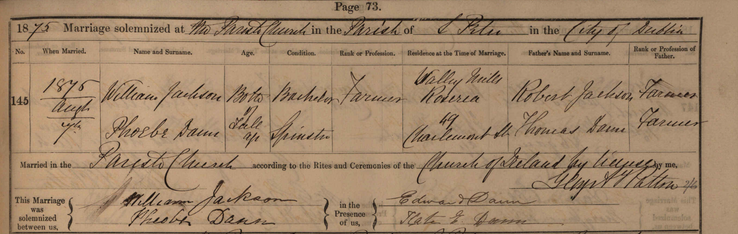 Page 73.
1875 Marriage solemnized at the Parish Church in the Parish of S Peter in the City of Dublin
No. When Married. Name and Surname. Age. Condition. Rank or Profession. Residence at the Time of Marriage. Father's Name and Surname. Rank or Profession of Father.
145 1875 Augt 7th William Jackson Both of Full age Bachelor Farmer Valley Mills Roscrea Robert Jackson Farmer
Phoebe Dann Spinster 49 Charlemont St. Thomas Dann Farmer
Married in the Parish Church according to the Rites and Ceremonies of the Church of Ireland by license by me,
This Marriage was solemnized between us, William Jackson Phoebe Dann in the Presence of us, Edward Dann Kate E Dann